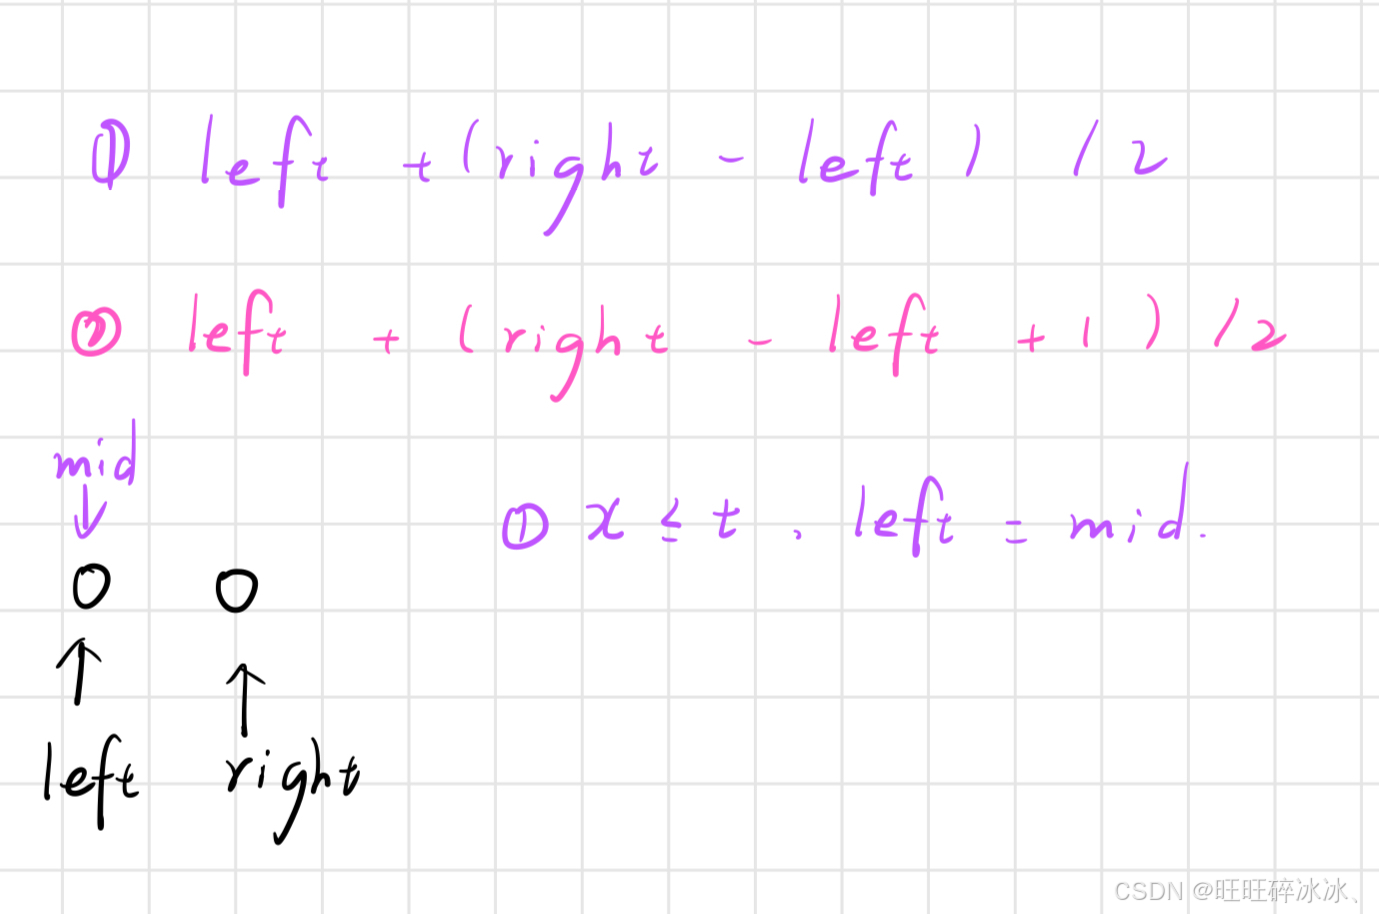 ① left + (right - left) / 2
② left + (right - left + 1) / 2
mid
① x ≤ t, left = mid.
left right
CSDN @旺旺碎冰冰、